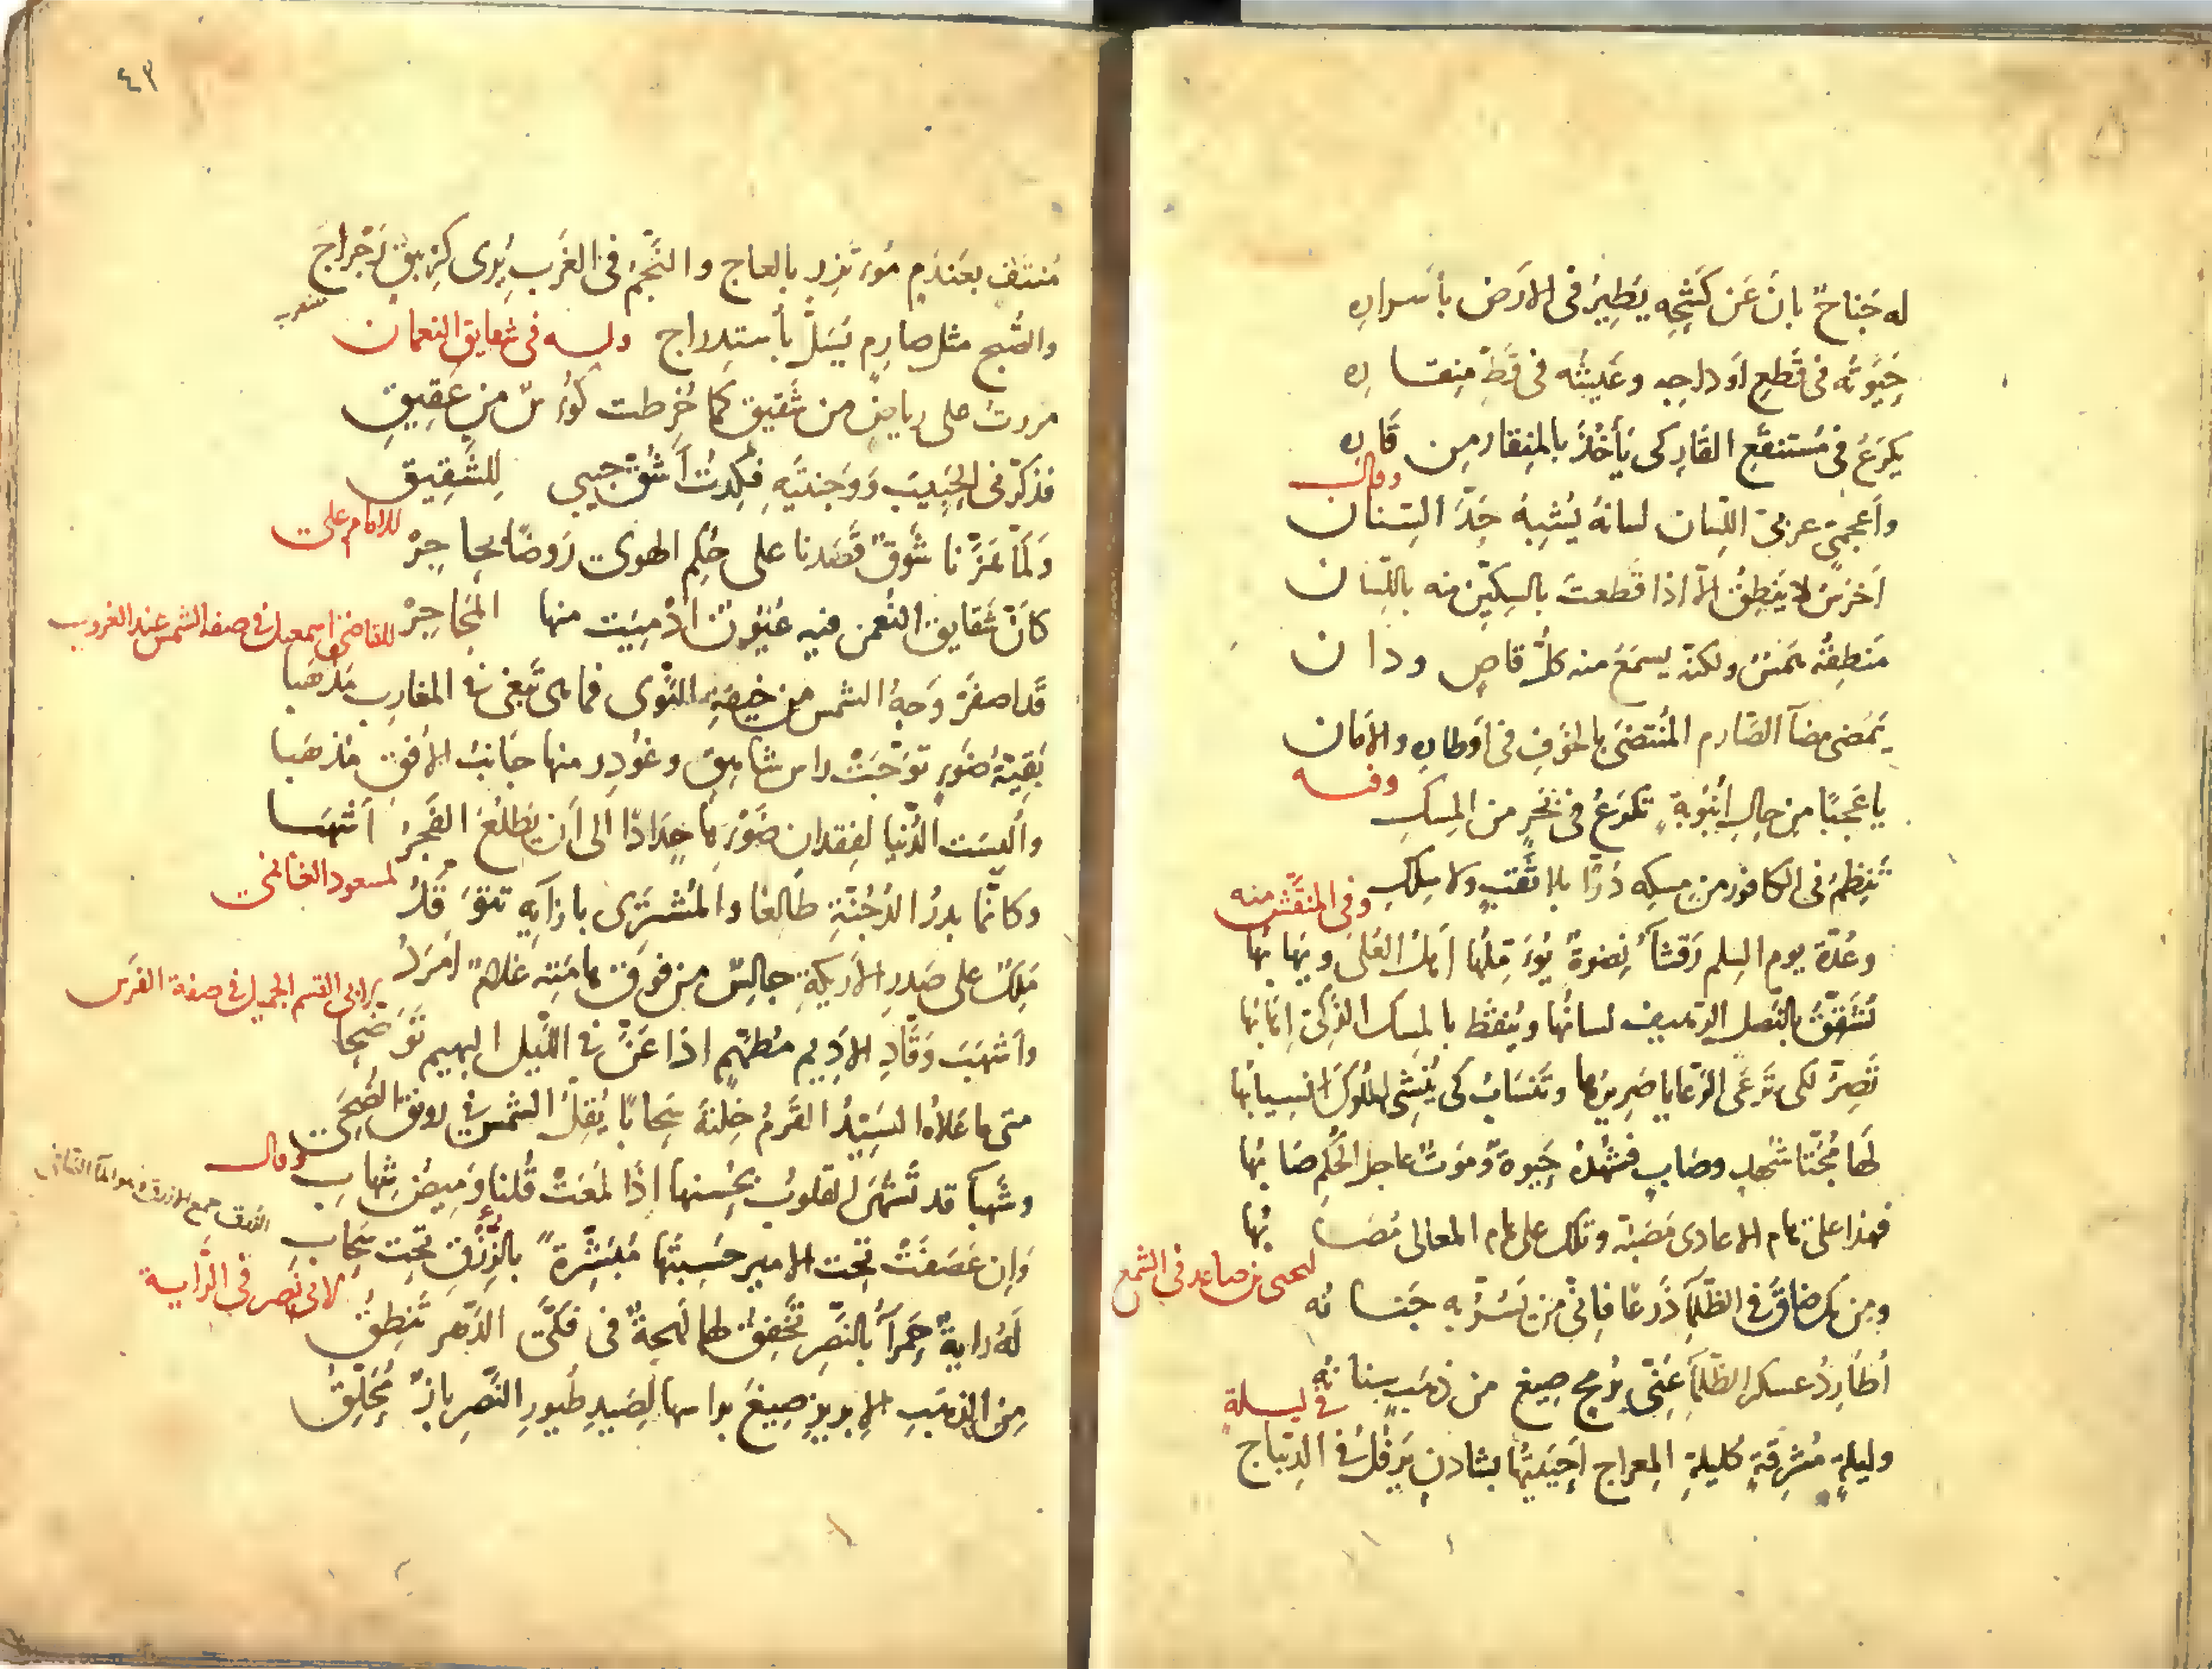 له جَناحٌ بانَ عَن كَشْحِه يَطِيرُ فى الارَض بأسراره
حَيٰوتُه فى قَطعِ اَوداجِه وعَيشُه فى قَطِّ مِنقاره
يكرَعُ فى مُستنقَعِ القَارِ كى يَأخُذَ بالمِنقار مِن قَاره
وقال
واَعجمىٍّ عربىّ اللِّسان لسانهُ يُشبِهُ حَدَّ السِنان
اَخرَسَ لا يَنطِقُ الاّ اذا قطعتَ بالسِكّينِ منه باللِّسان
مَنطِقُه هَمسٌ ولكنّه يسمَعُ منه كلُّ قاصٍ ودان
يَمضى مضآ الصَّارم المُنتضَى بالخوفِ فى اَوطاره والاَمان
وفيه
يا عَجَبًا مِن حالِ اُنبُوبةٍ تكرَعُ فى بَحرٍ من المِسكِ
تَنظِمُ فى الكافور من مِسكِه دُرًّا بلا ثَقبٍ ولا سِلكِ
وفى المنقّش منه
وعُدّة يوم السِلم رَقشآ نِضوةٌ
تُشَقَّقُ بالنَّصل الرّهيف لسانُها ويُنفَط بالمِسك الذَّكىّ
تَصِرُّ لكى تَرعَى الرّعايا صَرِيرَها وتَنسَابُ كى يُنشِى الملُوكَ انسِيابُها
لَها مُجّتا شَهدٍ وصَابٍ فشُهدُهُ حَيٰوةٌ ومَوتٌ عاجل الحُكم صَابُها
فهذا على هام الاعادى مَصَبّهُ وتلك على هام المعالى مُصَابُها
ليحيى بن صاعد فى الشمع
ومن يكُ ضاقَ فى الظَّلمآ ذَرعًا فانّى من يَسُرّ به جَنانُه
اُطَارِدُ عسكرَ الظّلمآ عَنّى برُمحٍ صِيغَ من ذهَبٍ سِنانُه
فى ليلةٍ
وليلةٍ مُشرِقةٍ كليلةِ المِعراج اَحيَيتُها بشادنٍ يَرفُلُ فى الدّيباج
٤٣
بعَندَمٍ مُوءتَزِرٍ بالعاج والنَّجمُ فى الغَربِ يُرى كزِيبقٍ رَجْراج
والصُّبح مثل صارِمٍ يُسَلُّ بأستِدراج
وله فى شقايق النعمان
مررتُ على رياضٍ من شَقيقٍ كما خُرِطت كُؤسٌ من عَقِيقِ
فذكّرنى الحَبِيبَ وَوَجنتَيهِ فكِدتُ اَشُقّ جيبى لِلشَّقِيقِ
للامام على
وَلَمّا هَزَّنا شَوقٌ قصَدنا على حُكمِ الهوى رَوضًا بحاجِرْ
كانّ شقايقَ النّعمٰن فيه عُيُونٌ اُدمِيَت منها المَحاجِرْ
للقاضى اسمعيل فى صفة الشمس عند الغروب
قَدِ اصفَرّ وَجهُ الشمس من خِيفَةِ النَّوى فما هى تَبغى فى المغارِبِ مَذهَبا
بَقِيّةُ ضَوءٍ تَوّجَتْ راس شاهِقٍ وغُودِر منها جَانبُ الاُفق مُذهَبا
واَلبسَت الدُّنيا لِفِقدان ضَوْءِها حِدَادًا الى اَن يَطلُعَ الفَجرُ اَشهَبا
لمسعود الغانمى
وكانّما بدرُ الدُّجُنّةِ طالِعًا والمُشترَى بازآيِه يَتَوَقَّدُ
مَلِكٌ على صَدرِ الاَريكةِ جالِسٌ من فوق هامَتِه غلامٌ اَمرَدُ
لابى القسم الجميل فى صفة الفَرَس
واَشهَبَ وَقّادِ الاَدِيم مُطهَّمٍ اذا عَنَّ فى اللّيل البهيم تَوَضَّحا
متى ما عَلاهُ السَيّدُ القَرمُ خِلتَهُ سَحابًا يُقِلّ الشمسَ فى رونق الضُحَى
وقال
وشَهبآ قد تُسْهَى القلوبُ بحُسنها اِذَا لمَعَتْ قُلنا وَمِيضُ شِهابِ
وَاِن عَصَفَتْ تحت الامير حَسِبتَها مُبَشِّرةً بالرِّزقِ تحت سَحابِ
لابى نصر فى الرّاية
لَهُ رايةٌ حَمرآُ بالنَّصرِ تَخفِقُ لها لَهجةٌ فى فَكّىِ الدَّهرِ تَنطِقُ
مِن الذهَبِ الاِبريزِ صِيغَ براسها لِصَيدِ طُيورِ النَّصرِ بازٌ مُحَلِّقُ